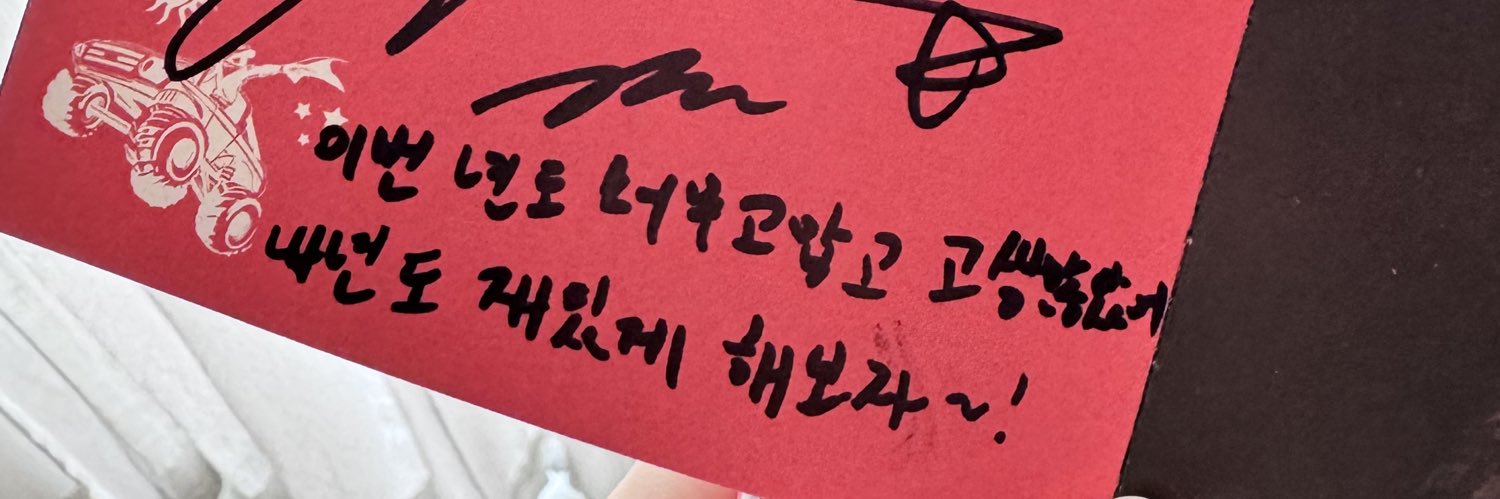 이번 년도 너무 고맙고 고생많았어
내년도 재밌게 해보자~!